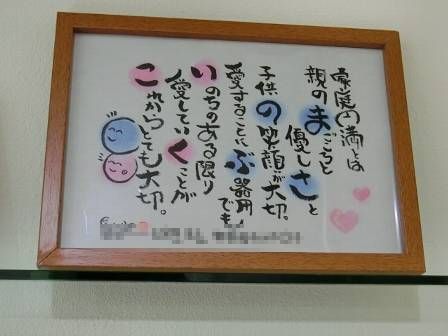 家庭円満とは
親のまごころと
優しさと
子供の笑顔が大切。
愛することにぶ器用でも
いのちのある限り
愛していくことが
これからとても大切。